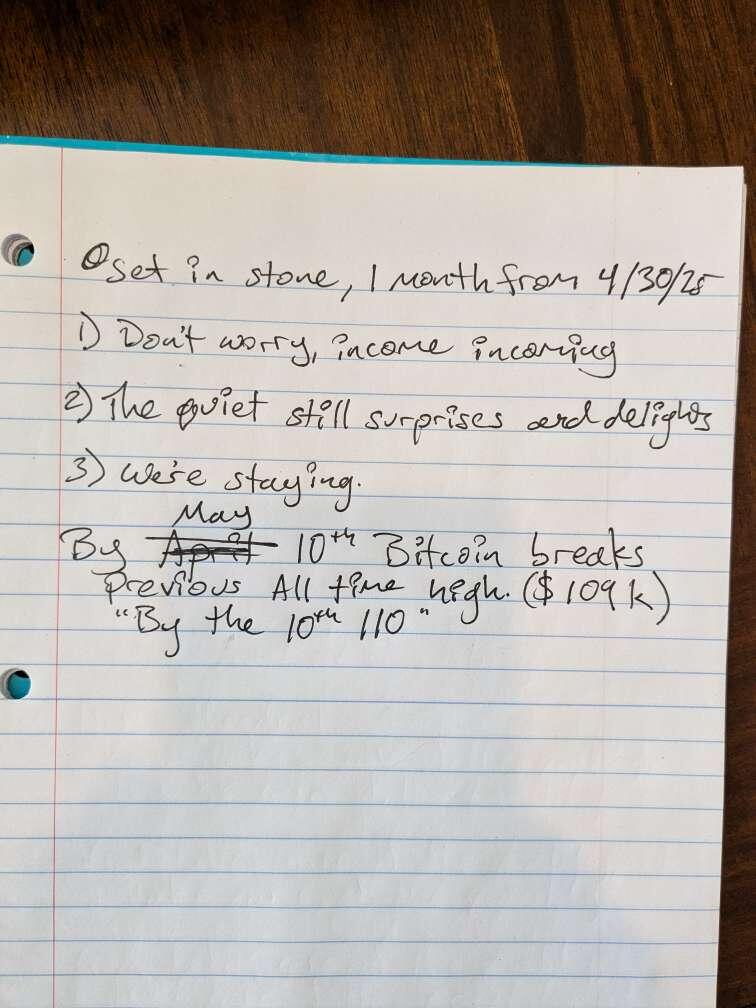 Set in stone, 1 month from 4/30/25
1) Don't worry, income incoming
2) The quiet still surprises and delights
3) We're staying.
May
By April 10th Bitcoin breaks
previous All time high. ($109k)
"By the 10th 110"